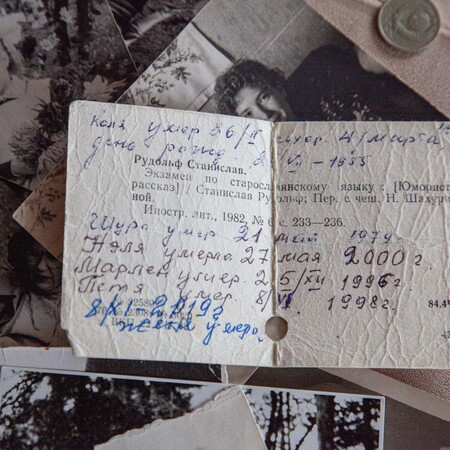 Коля умер 26/II схор. 4/марта
день рожд. 2 VI - 1955
Рудольф Станислав.
Экзамен по старославянскому языку: [Юморист.
рассказ] / Станислав Рудольф; Пер. с чеш. Н. Шахури
ной.
Иностр. лит., 1982, № 6, с. 233—236.
Шура умер 21 май 1979г.
Нэля умерла 27 мая 2000г
Марлен умер. 2 5/XII 1996г.
Петя умер. 8/VI. 1998г.
84.4
8/XI
Женя умерла